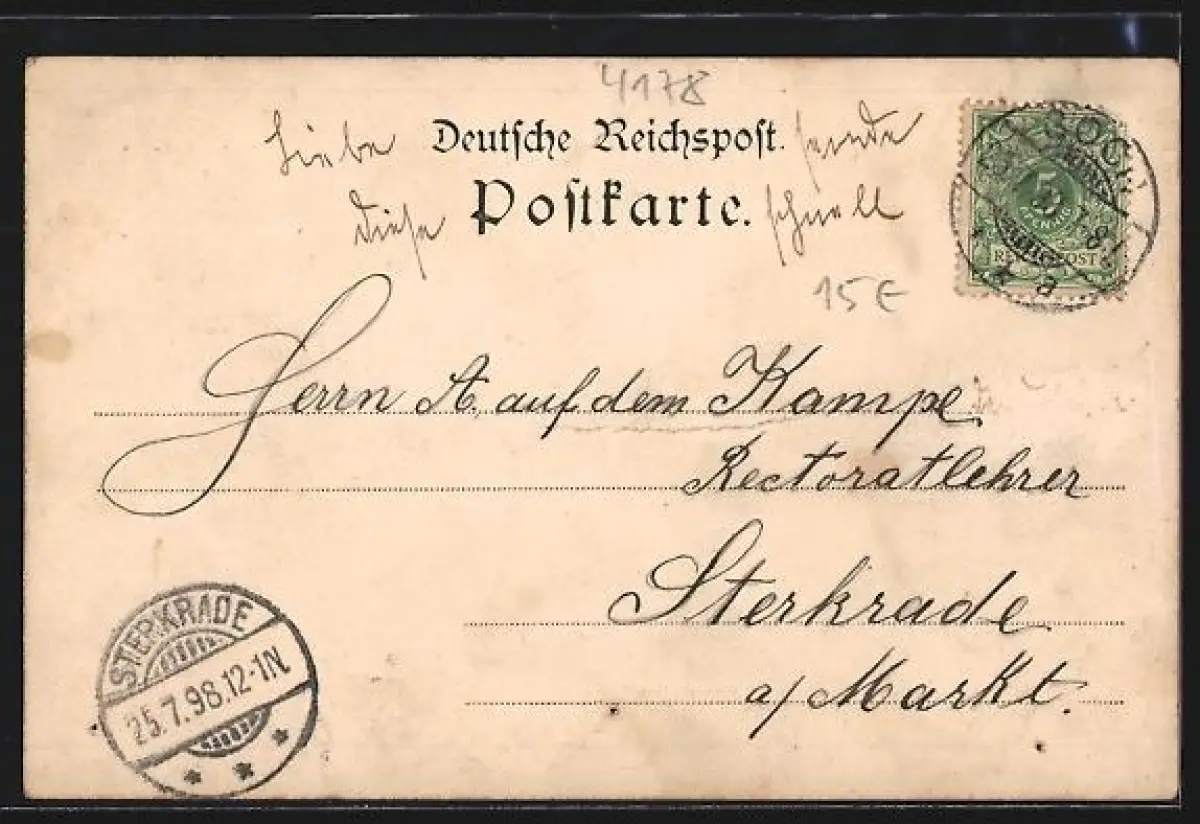 4178
Liebe Deutsche Reichspost. sende
diese Postkarte. schnell
15€
Herrn A. auf dem Kampe
Rectoratlehrer
Sterkrade
a/ Markt.
5
PFENNIG
REICHSPOST
a
STERKRADE
25.7.98.12-1N.